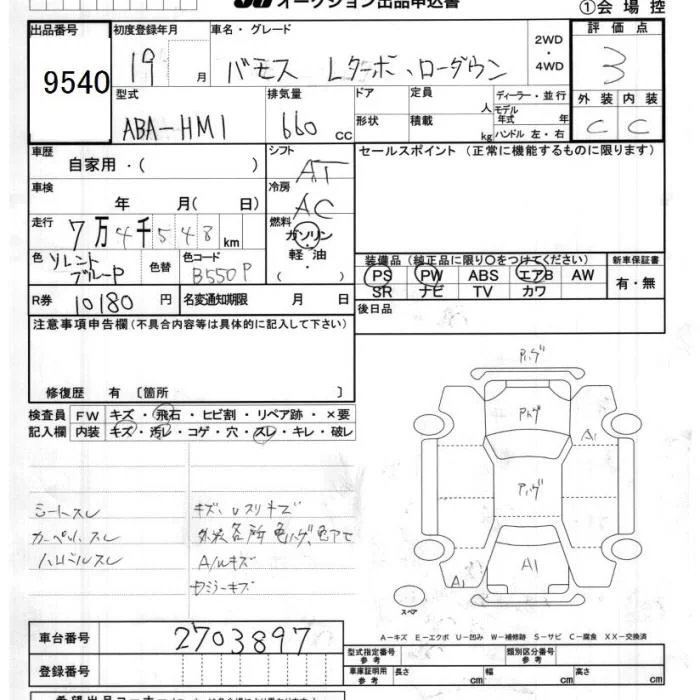 オークション出品申込書
①会場控
出品番号
9540
初度登録年月
19 月
車名・グレード
バモス Lターボ、ローダウン
2WD
・
4WD
評価点
3
型式
ABA-HM1
排気量
660 cc
ドア
形状
定員 人
積載 kg
ディーラー・並行
モデル
年式 年
ハンドル 左・右
外装 内装
C C
車歴
自家用・( )
シフト
AT
セールスポイント (正常に機能するものに限ります)
車検
年 月( 日)
冷房
AC
走行
7万4千548 km
燃料
ガソリン
軽油
・( )
色
ソレント
ブルーP
色替
色コード
B550P
装備品(純正品に限り○をつけてください)
PS PW ABS エアB AW
SR ナビ TV カワ
新車保証書
有・無
R券
10180 円
名変通知期限 月 日
後日品
注意事項申告欄(不具合内容等は具体的に記入して下さい)
修復歴 有 〔箇所 〕
検査員
記入欄
FW キズ・飛石・ヒビ割・リペア跡・×要
内装 キズ・汚レ・コゲ・穴・スレ・キレ・破レ
シートスレ
カーペットスレ
ハンドルスレ
キズ、Uスリキズ
外装各所色ハゲ、色アセ
A/Wキズ
A1
A1
A1
スペア
A-キズ E-エクボ U-凹み W-補修跡 S-サビ C-腐食 XX-交換済
車台番号
2703897
登録番号
型式指定番号
参考
類別区分番号
参考
車庫証明用
参考
長さ cm
幅 cm
高さ cm